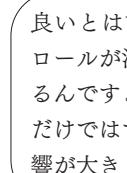 良いとは
ロールが
るんです
だけでは
響が大き